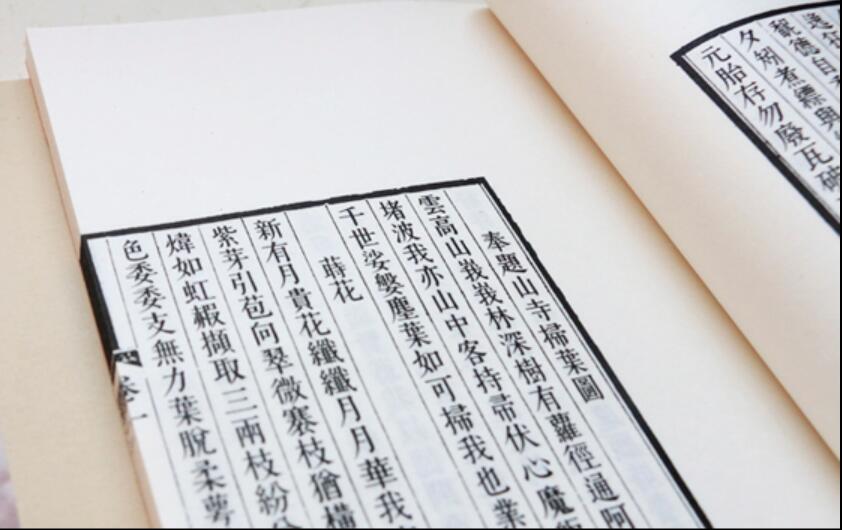 德自
煮縹與
元胎存勿廢瓦破
奉題山寺掃葉圖
雲高山峩峩林深樹有蘿徑通阿
堵波我亦山中客持帚伏心魔
千世娑媻塵葉如可掃我也業
蒔花
新有月貴花纖纖月月華我
紫芽引苞向翠微枝猶橫
煒如虹擷取三兩枝紛
色委委支無力葉脫柔
卷一